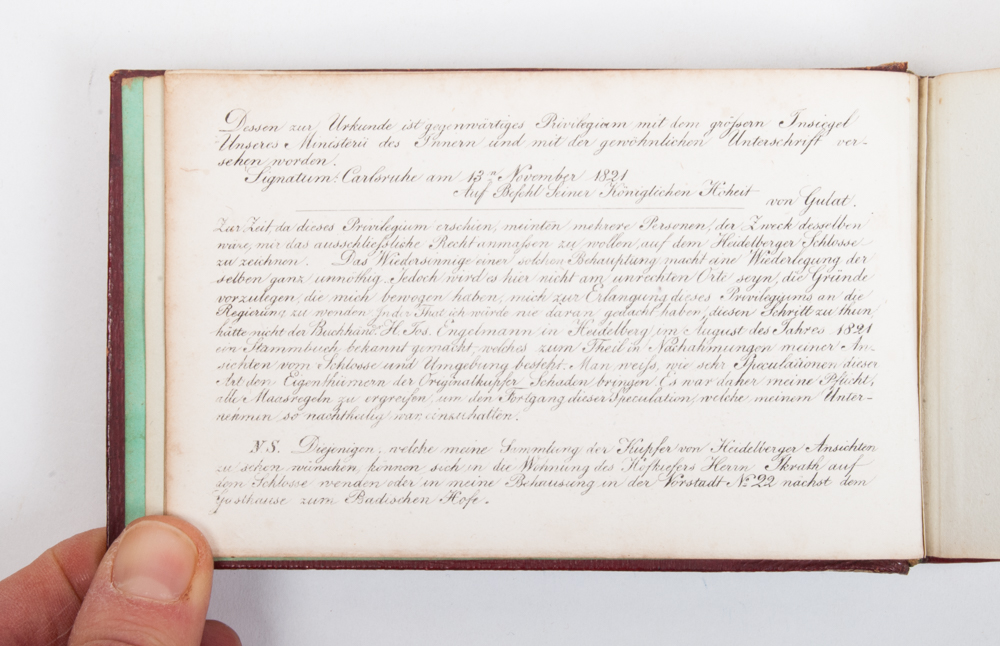 Dessen zur Urkunde ist gegenwärtiges Privilegium mit dem größern Insiegel
Unseres Ministerii des Innern und mit der gewöhnlichen Unterschrift ver-
sehen worden.
Signatum: Carlsruhe am 13n November 1821
Auf Befehl Seiner Königlichen Hoheit
von Gulat.
Zur Zeit, da dieses Privilegium erschien, meinten mehrere Personen, der Zweck desselben
wäre, mir das ausschließliche Recht anmaßen zu wollen, auf dem Heidelberger Schlosse
zu zeichnen. Das Wiedersinnige einer solchen Behauptung macht eine Wiederlegung der
selben ganz unnöthig. Jedoch wird es hier nicht am unrechten Orte seyn, die Gründe
vorzulegen, die mich bewogen haben, mich zur Erlangung dieses Privilegiums an die
Regierung zu wenden. In der That ich würde nie daran gedacht haben, diesen Schritt zu thun,
hätte nicht der Buchhändr. H. Jos. Engelmann in Heidelberg im August des Jahres 1821
ein Stammbuch bekannt gemacht, welches zum Theil in Nachahmungen meiner An-
sichten vom Schlosse und Umgebung besteht. Man weiß, wie sehr Speculationen dieser
Art den Eigenthümern der Originalkupfer Schaden bringen. Es war daher meine Pflicht,
alle Maasregeln zu ergreifen, um den Fortgang dieser Speculation, welche meinem Unter-
nehmen so nachtheilig war einzuhalten.
NS. Diejenigen, welche meine Sammlung der Kupfer von Heidelberger Ansichten
zu sehen wünschen, können sich in die Wohnung des Hofkiefers Herrn Ikrath auf
dem Schlosse wenden oder in meine Behausung in der Vorstadt No 22 nächst dem
Gasthause zum Badischen Hofe.